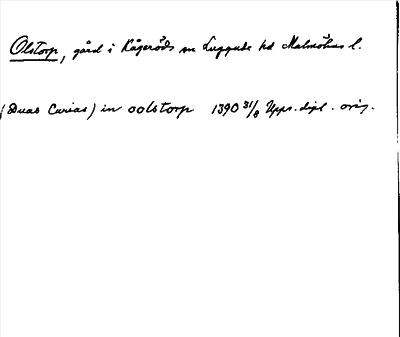 Olstorp, gård i Kågeröds sn Luggude hd Malmöhus l.
(Duas Curias) in oolstorp 1390 31/8 Upps. dipl. orig.